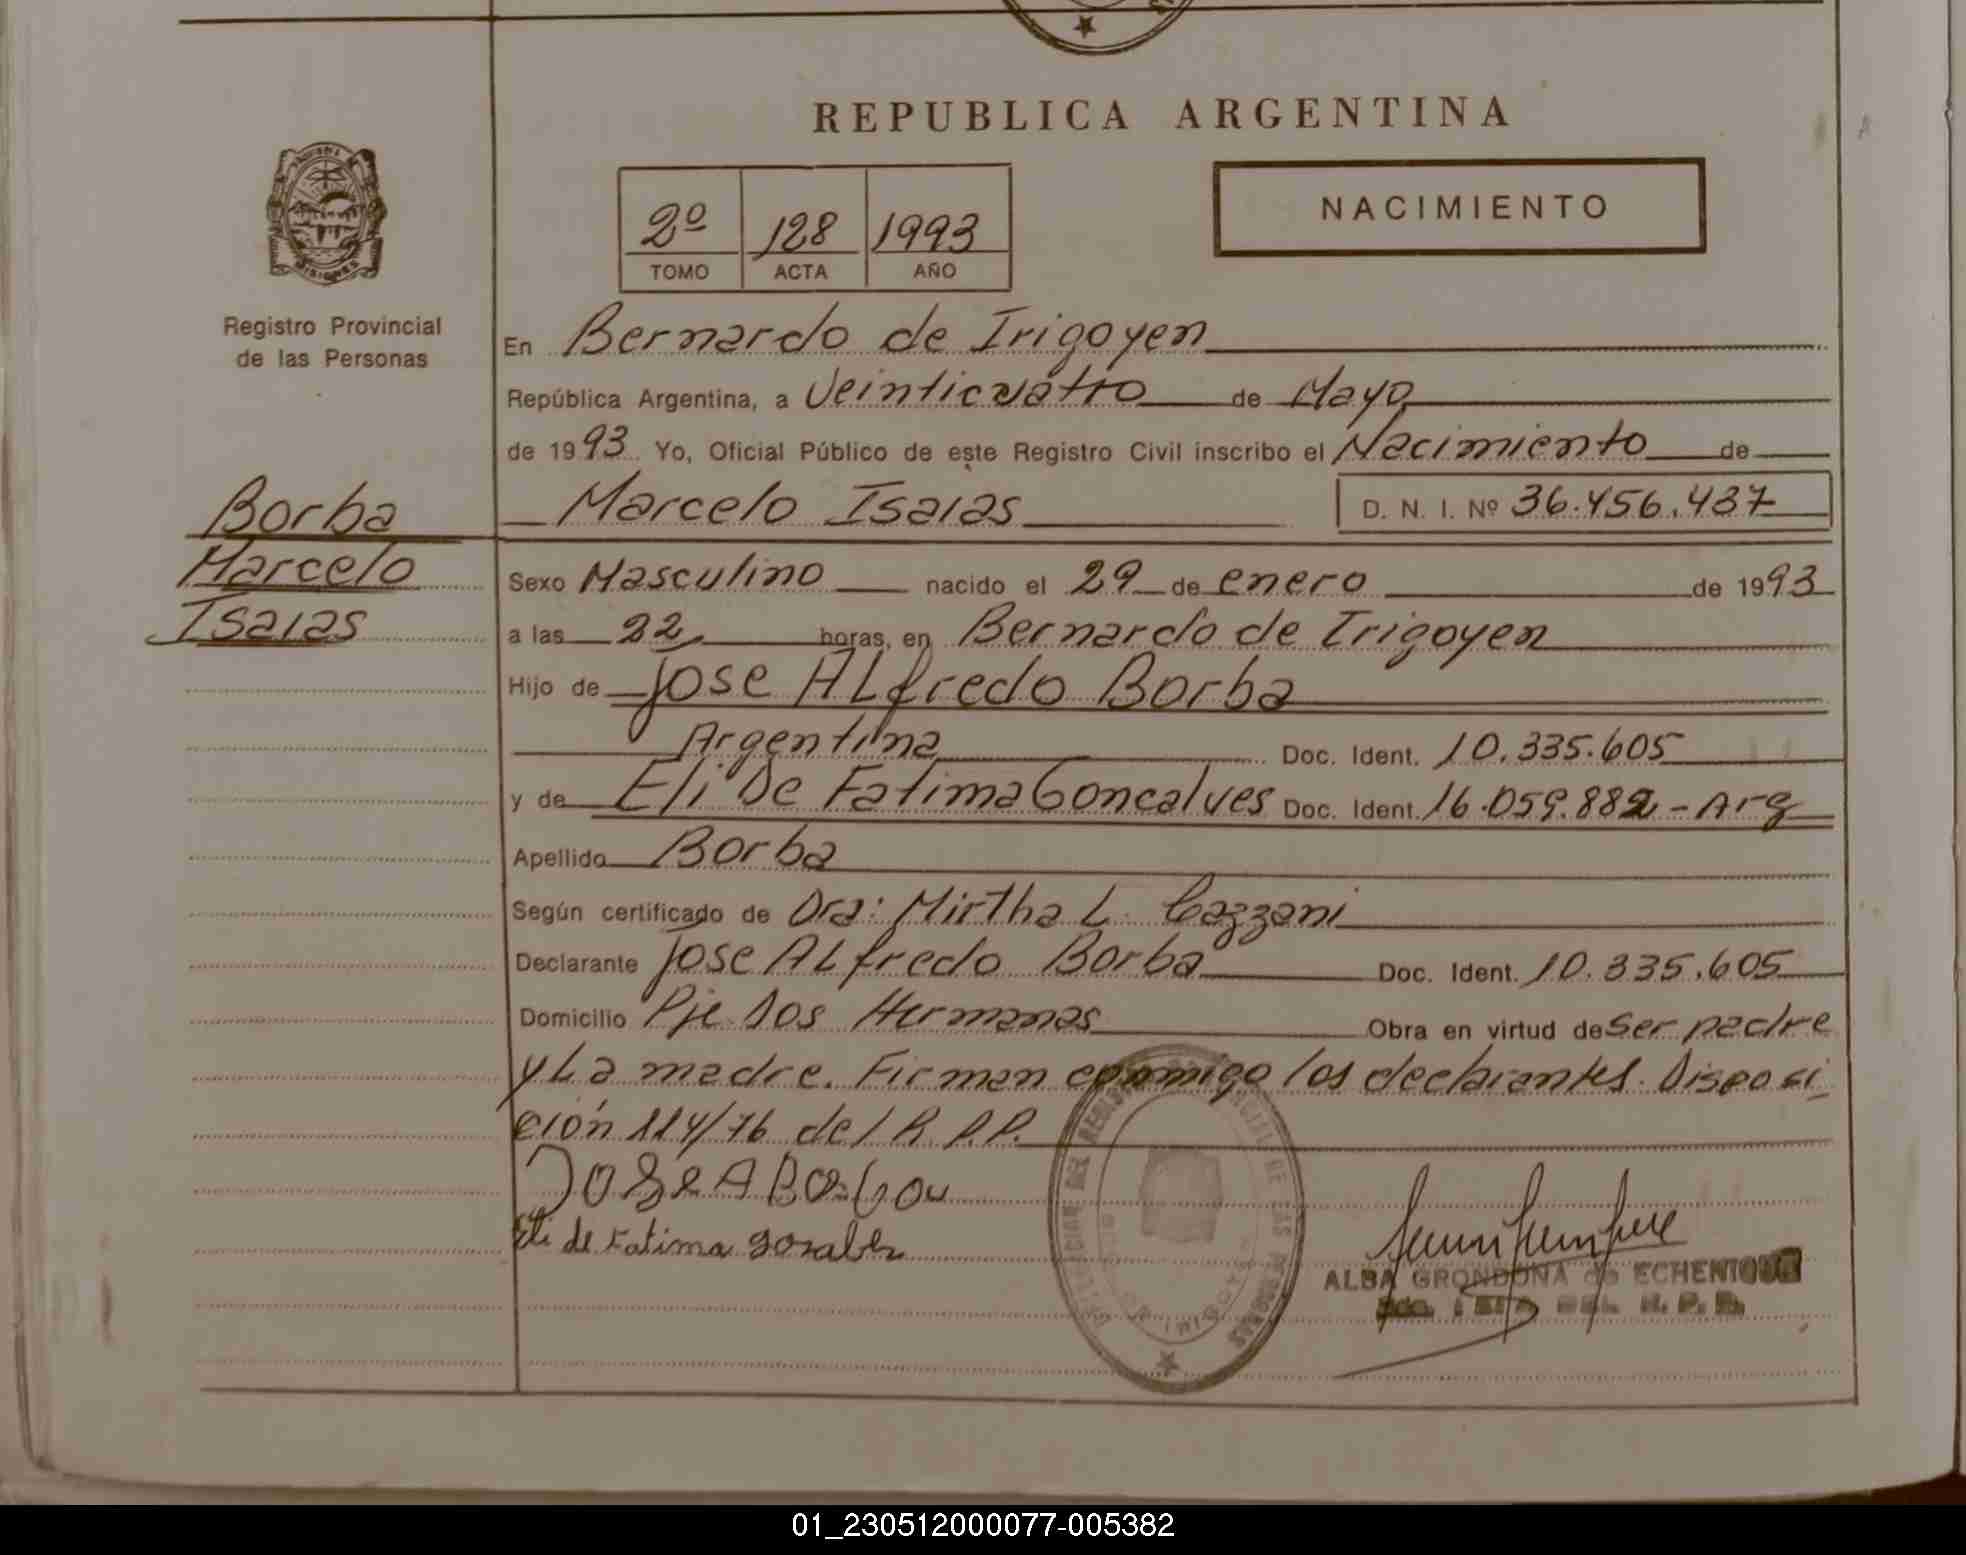 REPUBLICA ARGENTINA
NACIMIENTO
2º 128 1993
TOMO ACTA AÑO
MISIONES
Registro Provincial
de las Personas
En Bernardo de Irigoyen
República Argentina, a Veinticuatro de Mayo
de 1993 Yo, Oficial Público de este Registro Civil inscribo el Nacimiento de
Marcelo Isaias D. N. I. Nº 36.456.437
Borba
Marcelo
Isaias
Sexo Masculino nacido el 29 de enero de 1993
a las 22 horas, en Bernardo de Irigoyen
Hijo de Jose ALfredo Borba
Argentina Doc. Ident. 10.335.605
y de Eli De Fatima Goncalves Doc. Ident. 16.059.882 - Arg
Apellido Borba
Según certificado de Dra: Mirtha L. Cazzani
Declarante Jose ALfredo Borba Doc. Ident. 10.335.605
Domicilio Pje Dos Hermanas Obra en virtud de Ser padre
y La madre. Firman conmigo los declarantes. Disposi
ción 114/76 del R.P.P.
Eli de Fatima
ALBA GRONDONA de ECHENIQUE
DEL R. P. P.
01_230512000077-005382